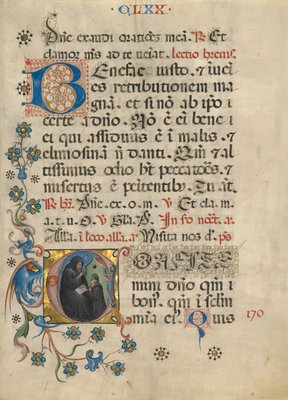 CLXX
Dñe exaudi orationẽ meã. Et
clamor ms ad te ueiat. lectio breuis.
Benefac iusto. ⁊ iuei
es retributionem ma
gnã. et si nõ ab ip̃o i
certe a dño. Nõ ẽ ei bene i
ci qui assiduus ẽ i malis. ⁊
elimosinã ñ danti. Qm̃ ⁊ al
tissimus odio h̃t peccatores. ⁊
misertus ẽ penitentib. Tu at̃
Dñe. ex. o. m. Et cla. m.
a. t. Gla. In noct. a.
Alla. i loco alla. a. nos d. ps
CONFITE
mini dño qm̃ i
bo. qm̃ i
mia ei. Quis
170